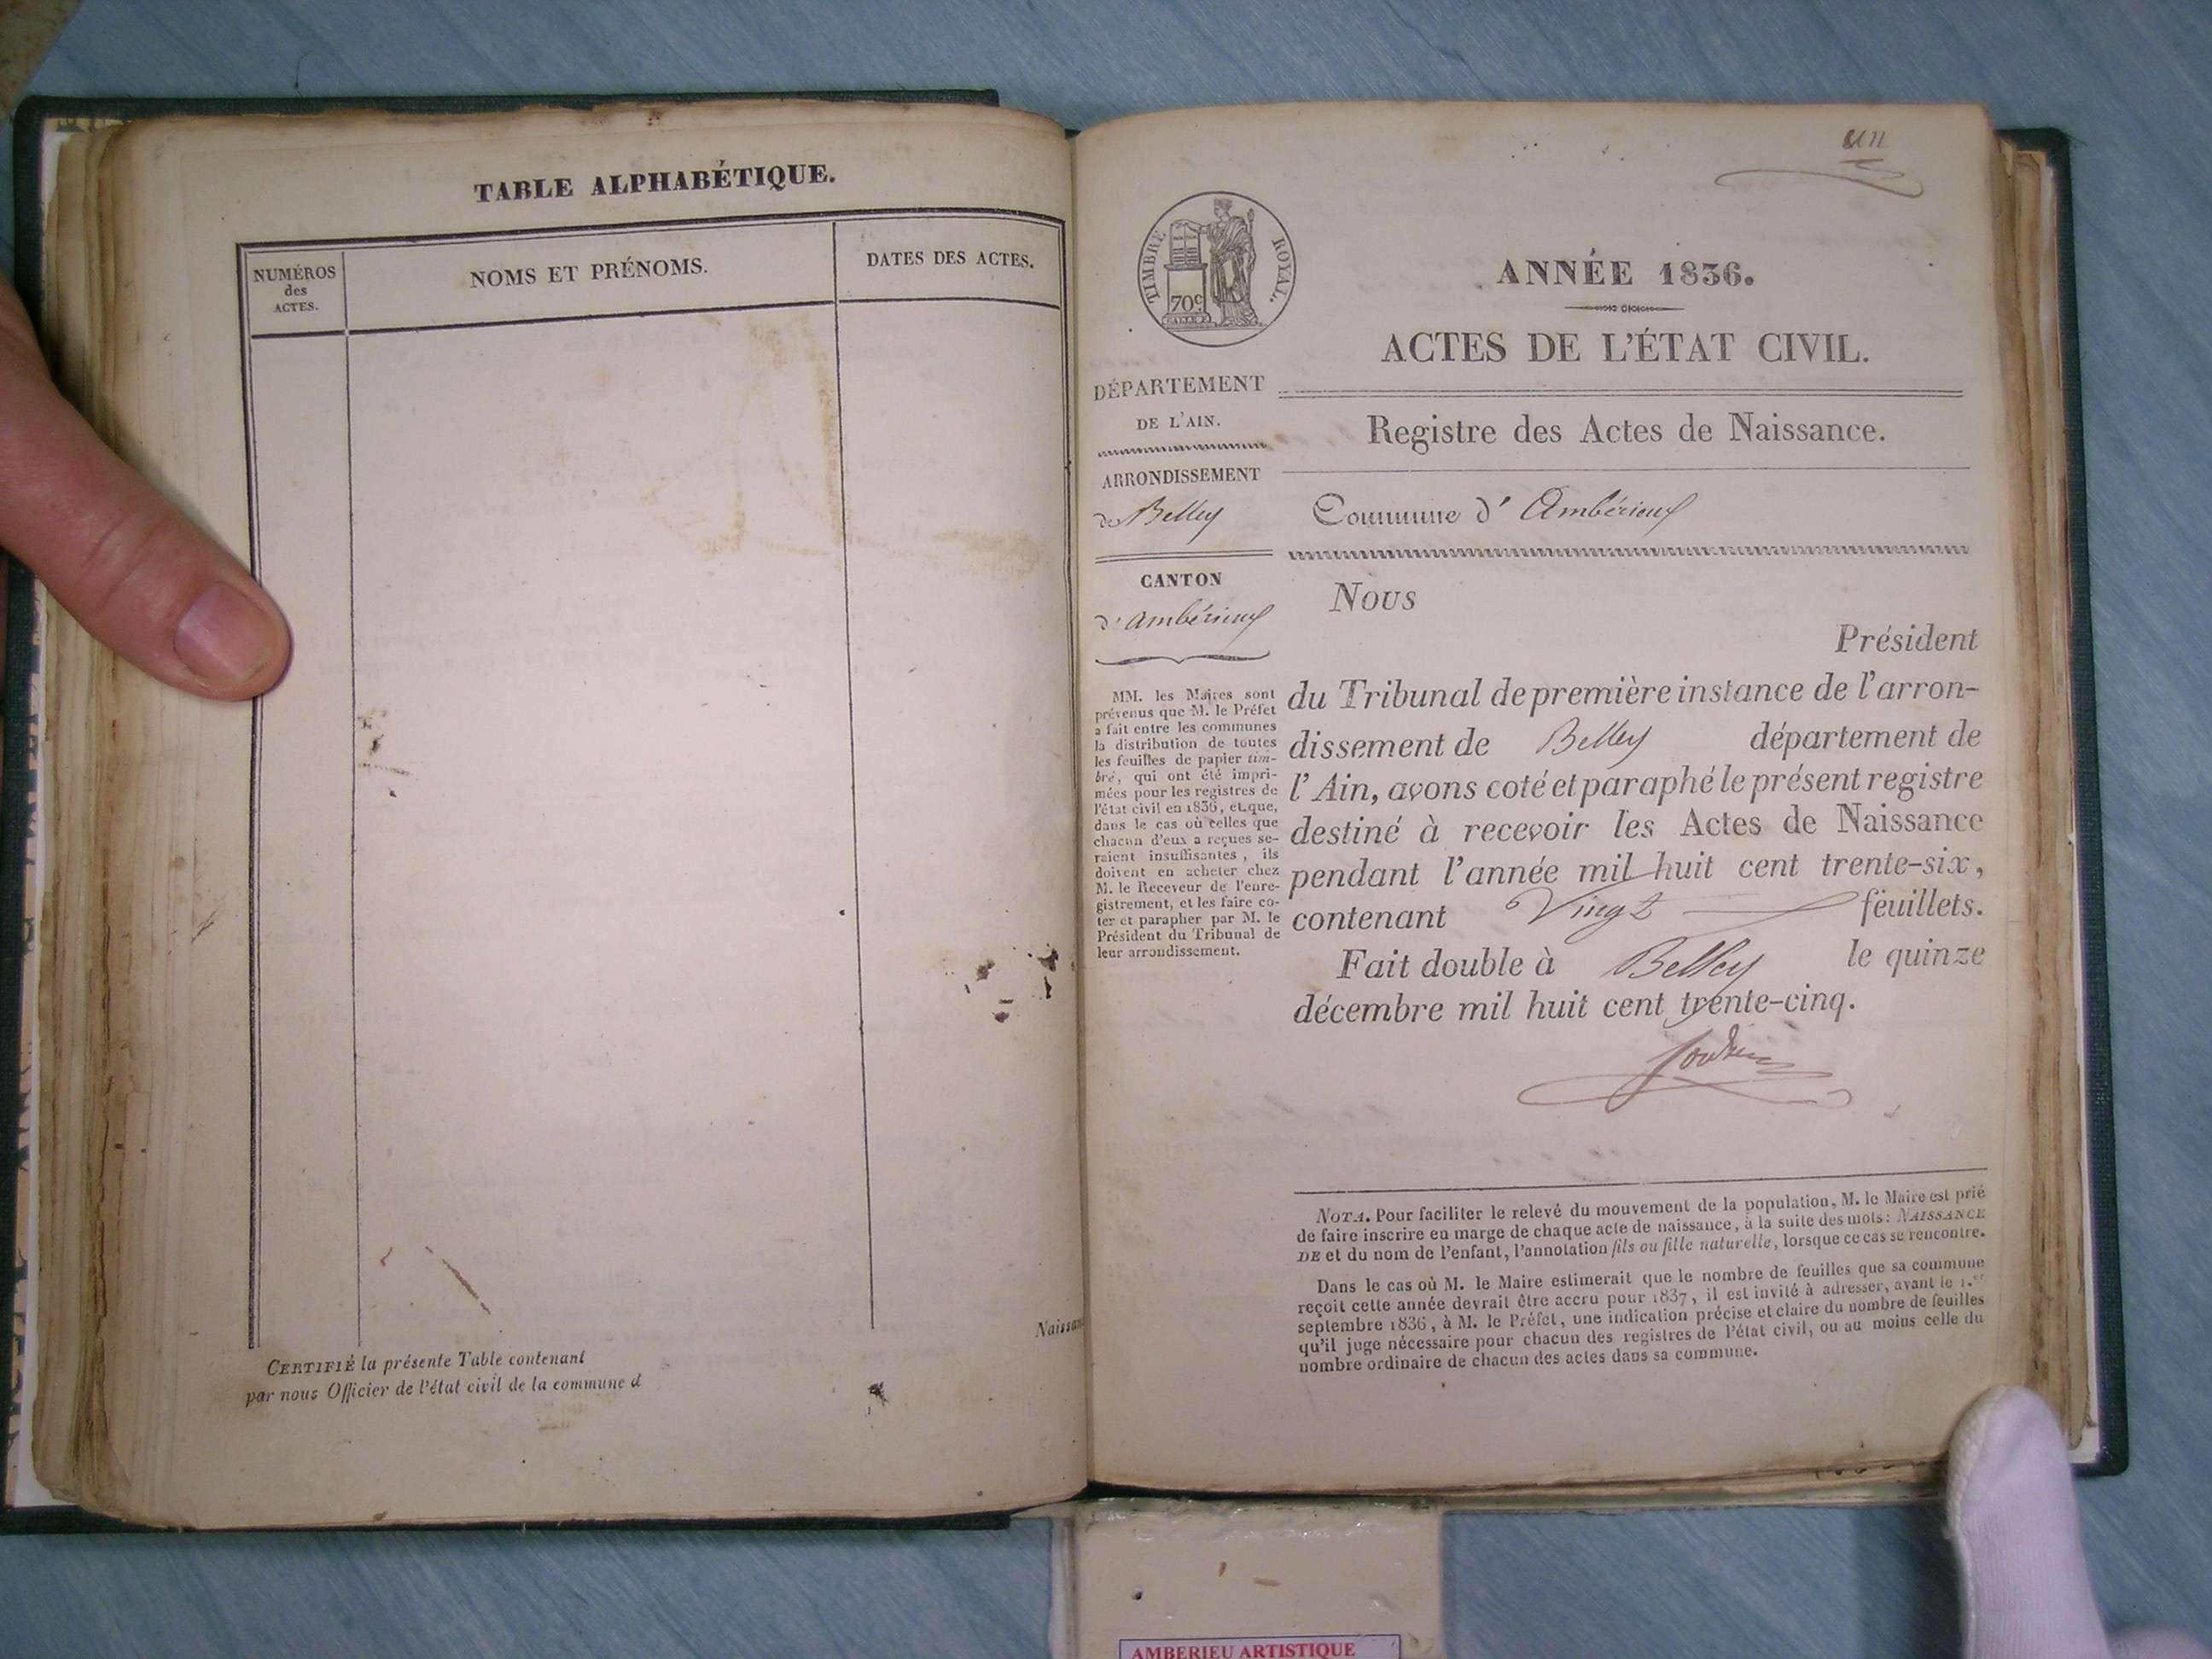 TABLE ALPHABÉTIQUE.
NUMÉROS
des
ACTES.
NOMS ET PRÉNOMS.
DATES DES ACTES.
CERTIFIÉ la présente Table contenant
par nous Officier de l'état civil de la commune d
Naissan
un
TIMBRE ROYAL.
70c
ANNÉE 1836.
ACTES DE L'ÉTAT CIVIL.
DÉPARTEMENT
DE L'AIN.
Registre des Actes de Naissance.
ARRONDISSEMENT
de Belley
Commune d' Ambérieux
CANTON
d'ambérieux
MM. les Maires sont
prévenus que M. le Préfet
a fait entre les communes
la distribution de toutes
les feuilles de papier tim-
bré, qui ont été impri-
mées pour les registres de
l'état civil en 1836, et que,
dans le cas où celles que
chacun d'eux a reçues se-
raient insuffisantes, ils
doivent en acheter chez
M. le Receveur de l'enre-
gistrement, et les faire co-
ter et parapher par M. le
Président du Tribunal de
leur arrondissement.
NOUS
Président
du Tribunal de première instance de l'arron-
dissement de Belley département de
l'Ain, avons coté et paraphé le présent registre
destiné à recevoir les Actes de Naissance
pendant l'année mil huit cent trente-six,
contenant Vingt feuillets.
Fait double à Belley le quinze
décembre mil huit cent trente-cinq.
NOTA. Pour faciliter le relevé du mouvement de la population, M. le Maire est prié
de faire inscrire en marge de chaque acte de naissance, à la suite des mots: NAISSANCE
DE et du nom de l'enfant, l'annotation fils ou fille naturelle, lorsque ce cas se rencontre.
Dans le cas où M. le Maire estimerait que le nombre de feuilles que sa commune
reçoit cette année devrait être accru pour 1837, il est invité à adresser, avant le 1.er
septembre 1836, à M. le Préfet, une indication précise et claire du nombre de feuilles
qu'il juge nécessaire pour chacun des registres de l'état civil, ou au moins celle du
nombre ordinaire de chacun des actes dans sa commune.
AMBERIEU ARTISTIQUE